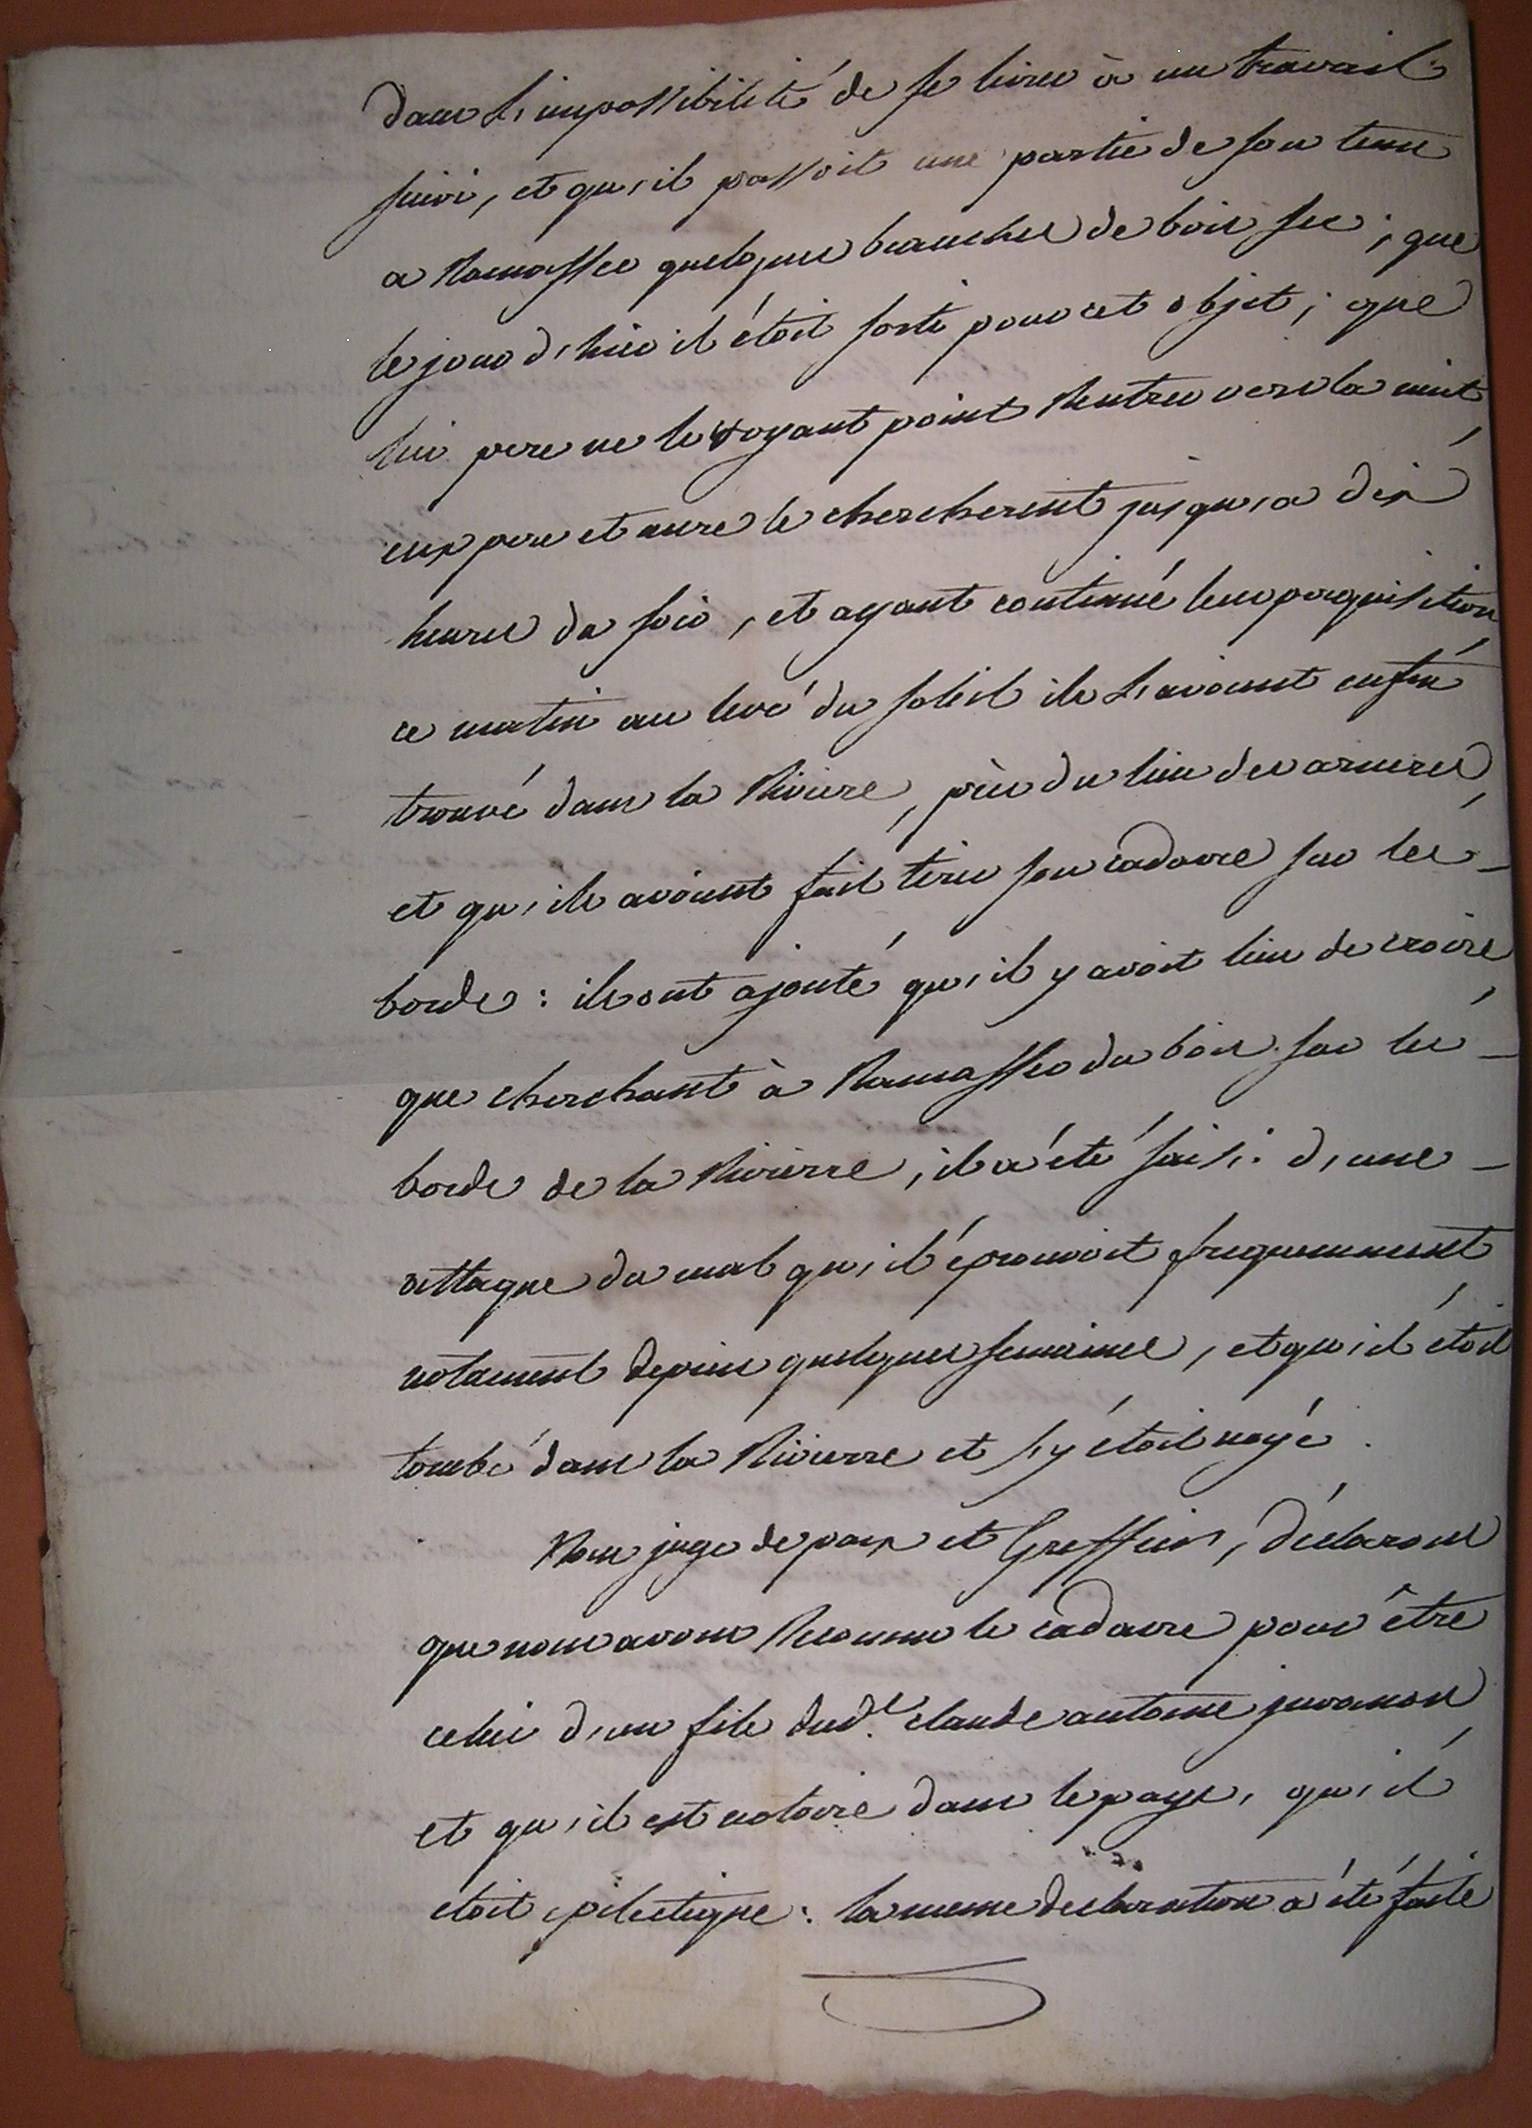 dans l'impossibilité de se livrer à un travail
suivi, et qu'il passoit une partie de son tems
a Ramasser quelques branches de bois sec ; que
le jour d'hier il étoit sorti pour cet objet ; que
lui pere ne le voyant point Rentrer vers la nuit
eux pere et mere le chercherent jusqu'a dix
heures du soir, et ayant continué leur perquisition
ce matin au levé du soleil ils l'avoient enfin
trouvé dans la Riviere, près du lieu des
et qu'ils avoient fait tirer son cadavre sur les
bords : ils ont ajouté qu'il y avoit lieu de croire
que cherchant à Ramasser du bois sur les
bords de la Rivierre, il a été saisi d'une
attaque du mal qu'il éprouvoit frequemment
notament depuis quelques semaines, et qu'il étoit
tombé dans la Rivierre et s'y étoit noyé.
Nous juge de paix et Greffier, déclarons
que nous avons Reconnu le cadavre pour être
celui d'un fils dud.t claude antoine juvanon
et qu'il est notoire dans le pays, qu'il
etoit epilectique : la meme declaration a été faite